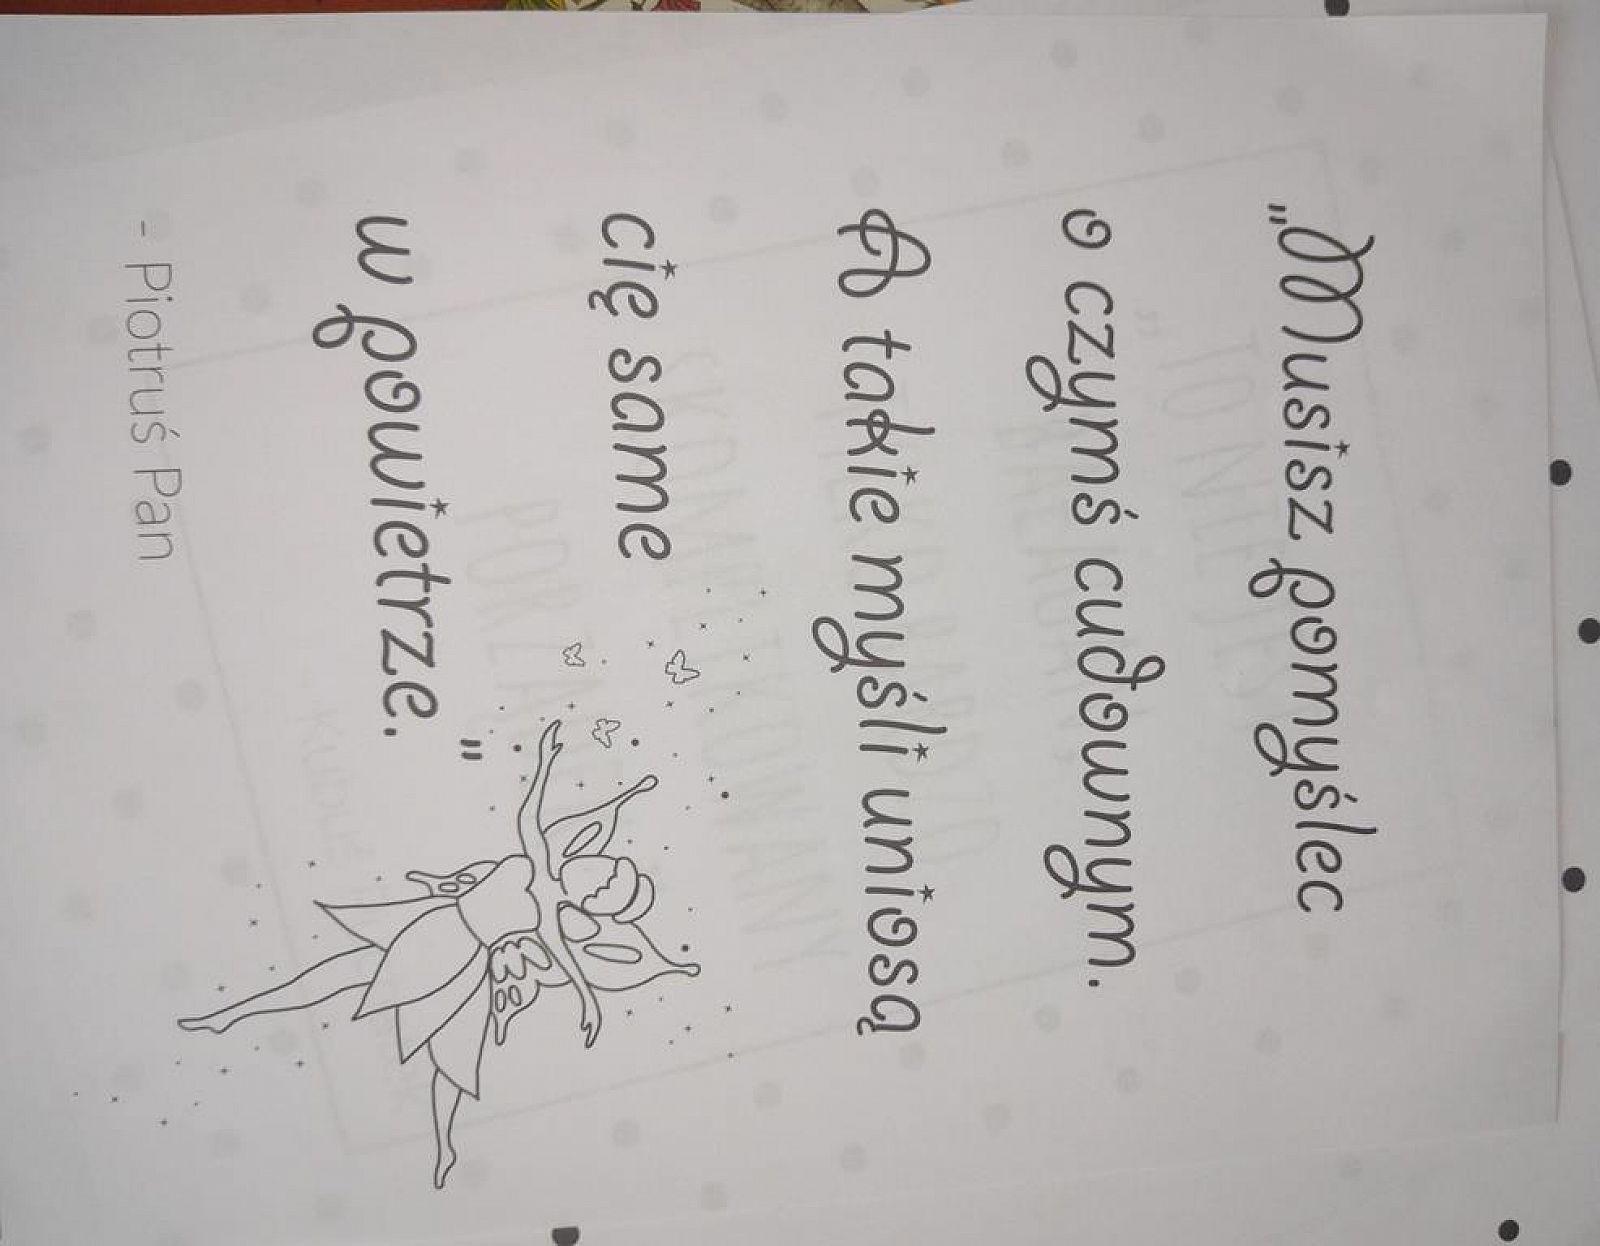 „Musisz pomyślec
o czymś cudownym.
A takie myśli uniosą
cię same
w powietrze."
- Piotruś Pan